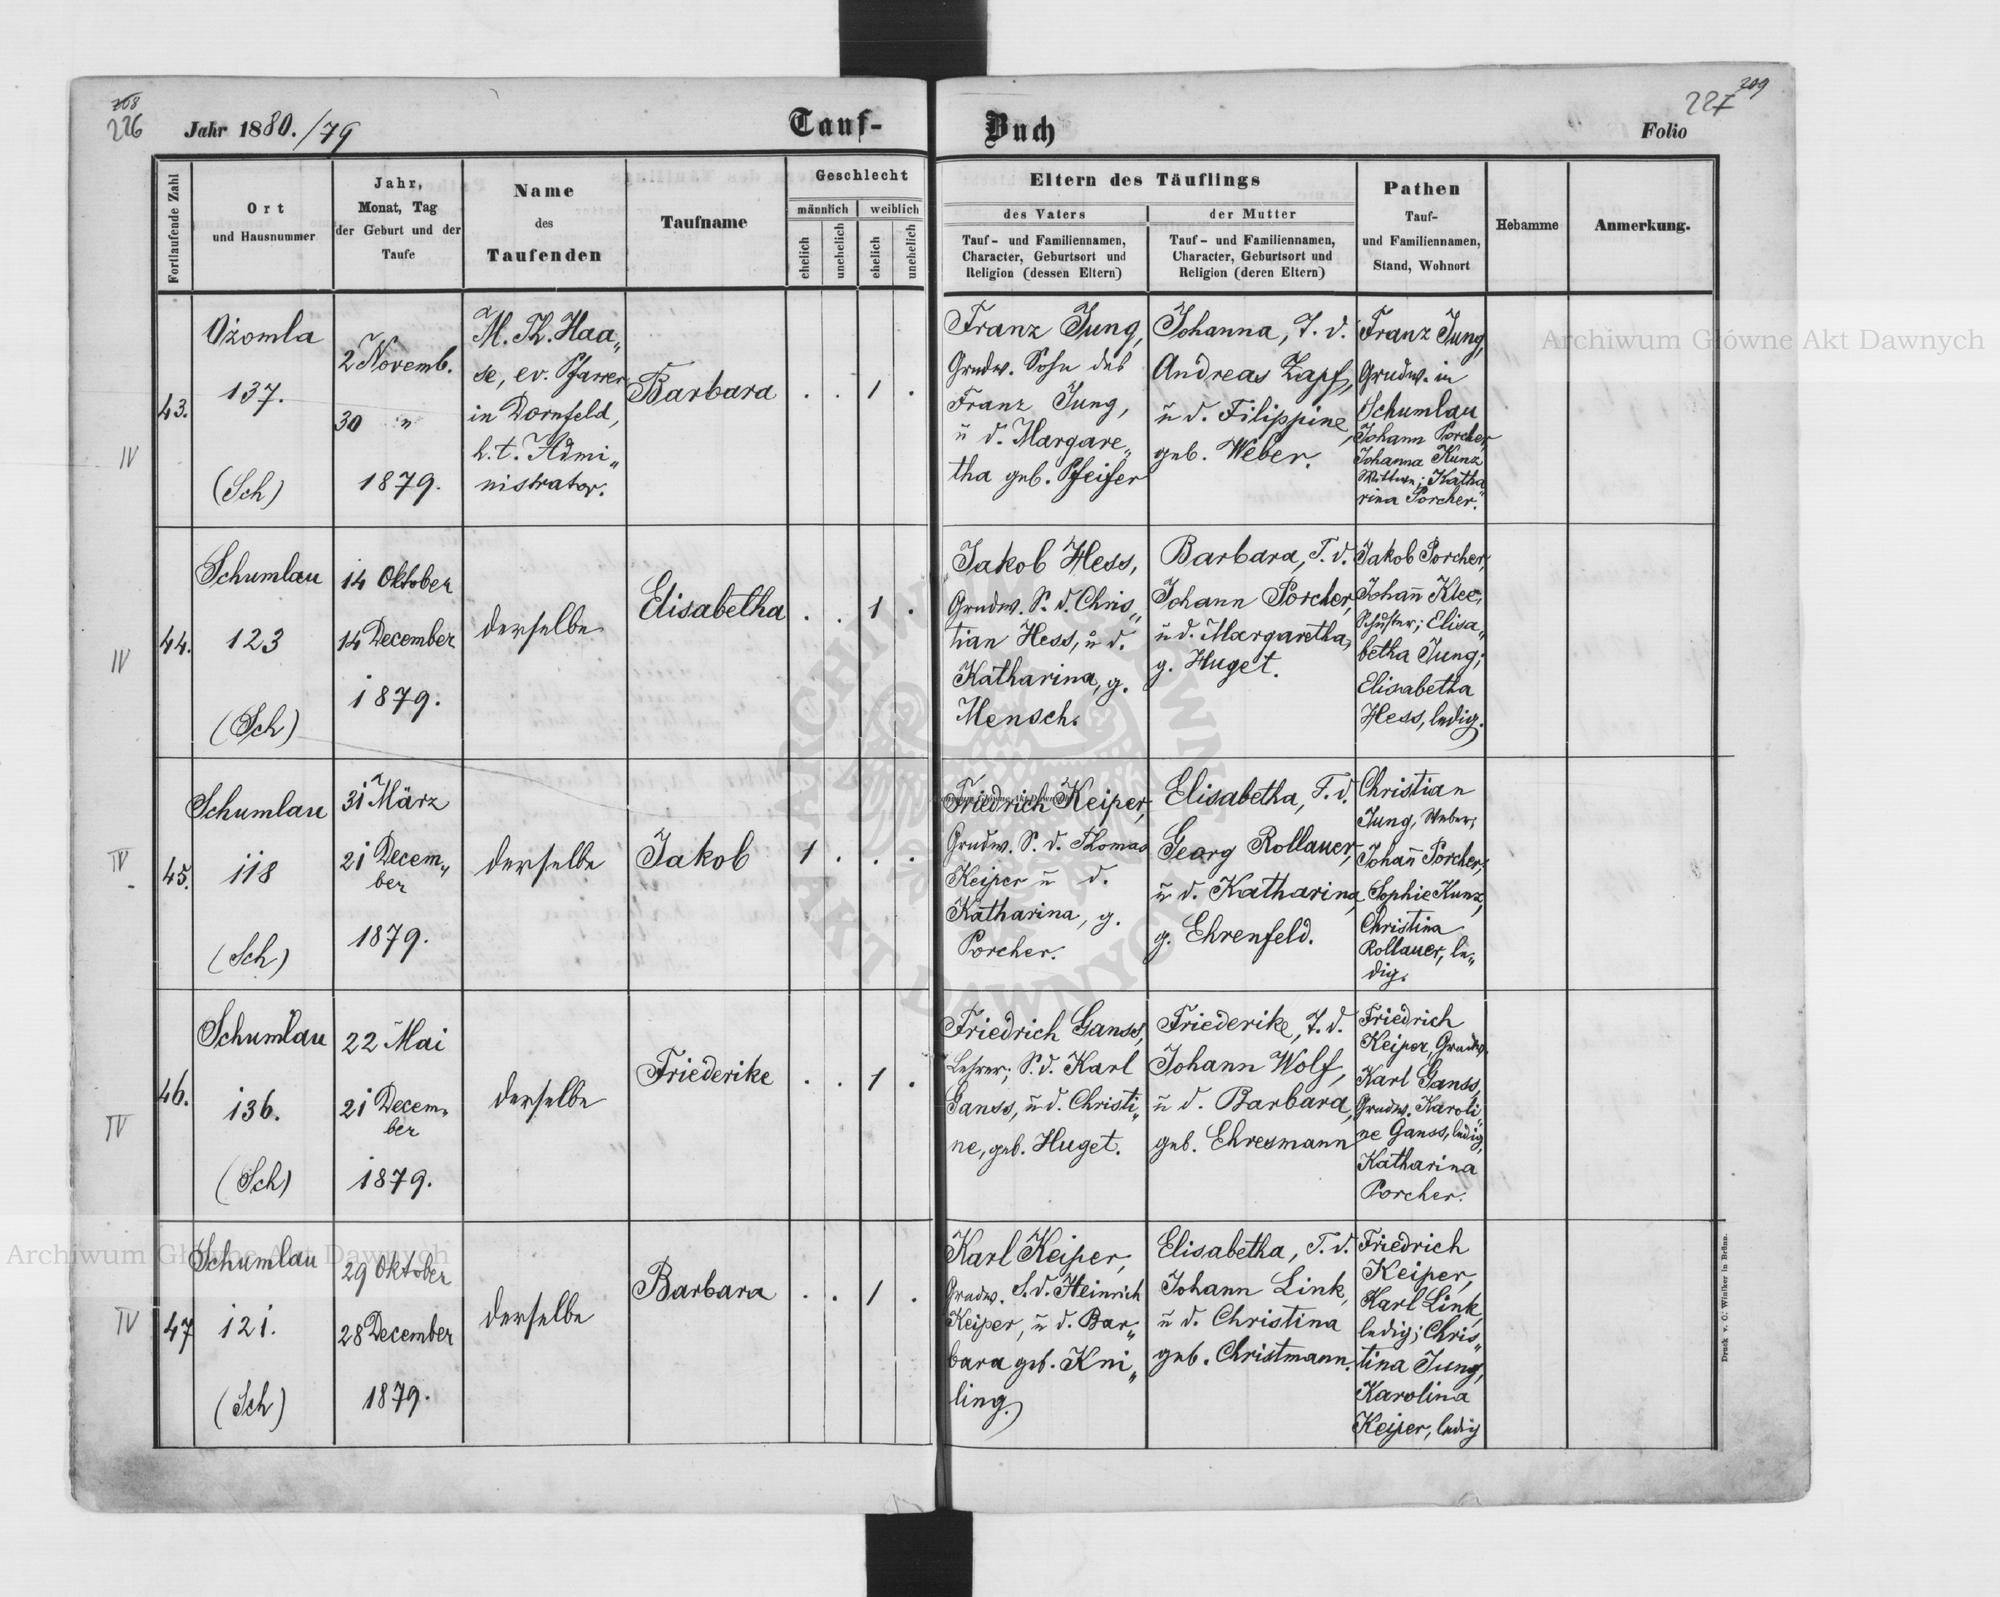 208
226
Jahr 1880./79
Tauf-
Buch
209
227
Folio
Fortlaufende Zahl
Ort
und Hausnummer
Jahr,
Monat, Tag
der Geburt und der
Taufe
Name
des
Taufenden
Taufname
Geschlecht
männlich
weiblich
ehelich
unehelich
ehelich
unehelich
Eltern des Täuflings
des Vaters
Tauf- und Familiennamen,
Character, Geburtsort und
Religion (dessen Eltern)
der Mutter
Tauf- und Familiennamen,
Character, Geburtsort und
Religion (deren Eltern)
Pathen
Tauf-
und Familiennamen,
Stand, Wohnort
Hebamme
Anmerkung.
IV
43.
Ożomla
137.
(Sch)
2 Novemb.
30 "
1879.
M. Th. Haa„
se, ev. Pfarrer
in Dornfeld,
h.t. Admi„
nistrator.
Barbara
. . 1 .
Franz Jung,
Grndw. Sohn des
Franz Jung,
u d. Margare„
tha geb. Pfeifer
Johanna, T. d.
Andreas Zapf,
u d. Filippine,
geb. Weber.
Franz Jung,
Grndw. in
Schumlau
Johann Porcher,
Johanna Kunz
Wittwe; Katha„
rina Porcher.
IV
44.
Schumlau
123
(Sch)
14 Oktober
14 December
1879.
derselbe
Elisabetha
. . 1 .
Jakob Hess,
Grndw. S. d. Chris„
tian Hess, u d.
Katharina, g.
Mensch.
Barbara, T. d.
Johann Porcher,
u d. Margaretha,
g. Huget.
Jakob Porcher,
Johann Klee,
Schuster; Elisa„
betha Jung;
Elisabetha
Hess, ledig.
IV
45.
Schumlau
118
(Sch)
31 März
21 Decem„
ber
1879.
derselbe
Jakob
1 . . .
Friedrich Keiper,
Grndw. S. d. Thomas
Keiper u d.
Katharina, g.
Porcher.
Elisabetha, T. d.
Georg Rollauer,
u d. Katharina,
g. Ehrenfeld.
Christian
Jung, Weber;
Johann Porcher;
Sophie Kunz,
Christina
Rollauer, le„
dig.
IV
46.
Schumlau
136.
(Sch)
22 Mai
21 Decem„
ber
1879.
derselbe
Friederike
. . 1 .
Friedrich Ganss,
Lehrer; S. d. Karl
Ganss, u d. Christi„
ne, geb. Huget.
Friederike, T. d.
Johann Wolf,
u d. Barbara,
geb. Ehresmann
Friedrich
Keiper, Grndw.
Karl Ganss,
Grndw. Karoli„
ne Ganss, ledig,
Katharina
Porcher.
IV
47
Schumlau
121.
(Sch)
29 Oktober
28 December
1879.
derselbe
Barbara
. . 1 .
Karl Keiper,
Grndw. S. d. Heinrich
Keiper, u d. Bar„
bara geb. Kni„
ling.
Elisabetha, T. d.
Johann Link,
u d. Christina
geb. Christmann.
Friedrich
Keiper,
Karl Link,
ledig; Chris„
tina Jung,
Karolina
Keiper, ledig
Druck v. C. Winiker in Brünn.
Archiwum Główne Akt Dawnych
Archiwum Główne Akt Dawnych
ARCHIWUM GŁÓWNE
AKT DAWNYCH